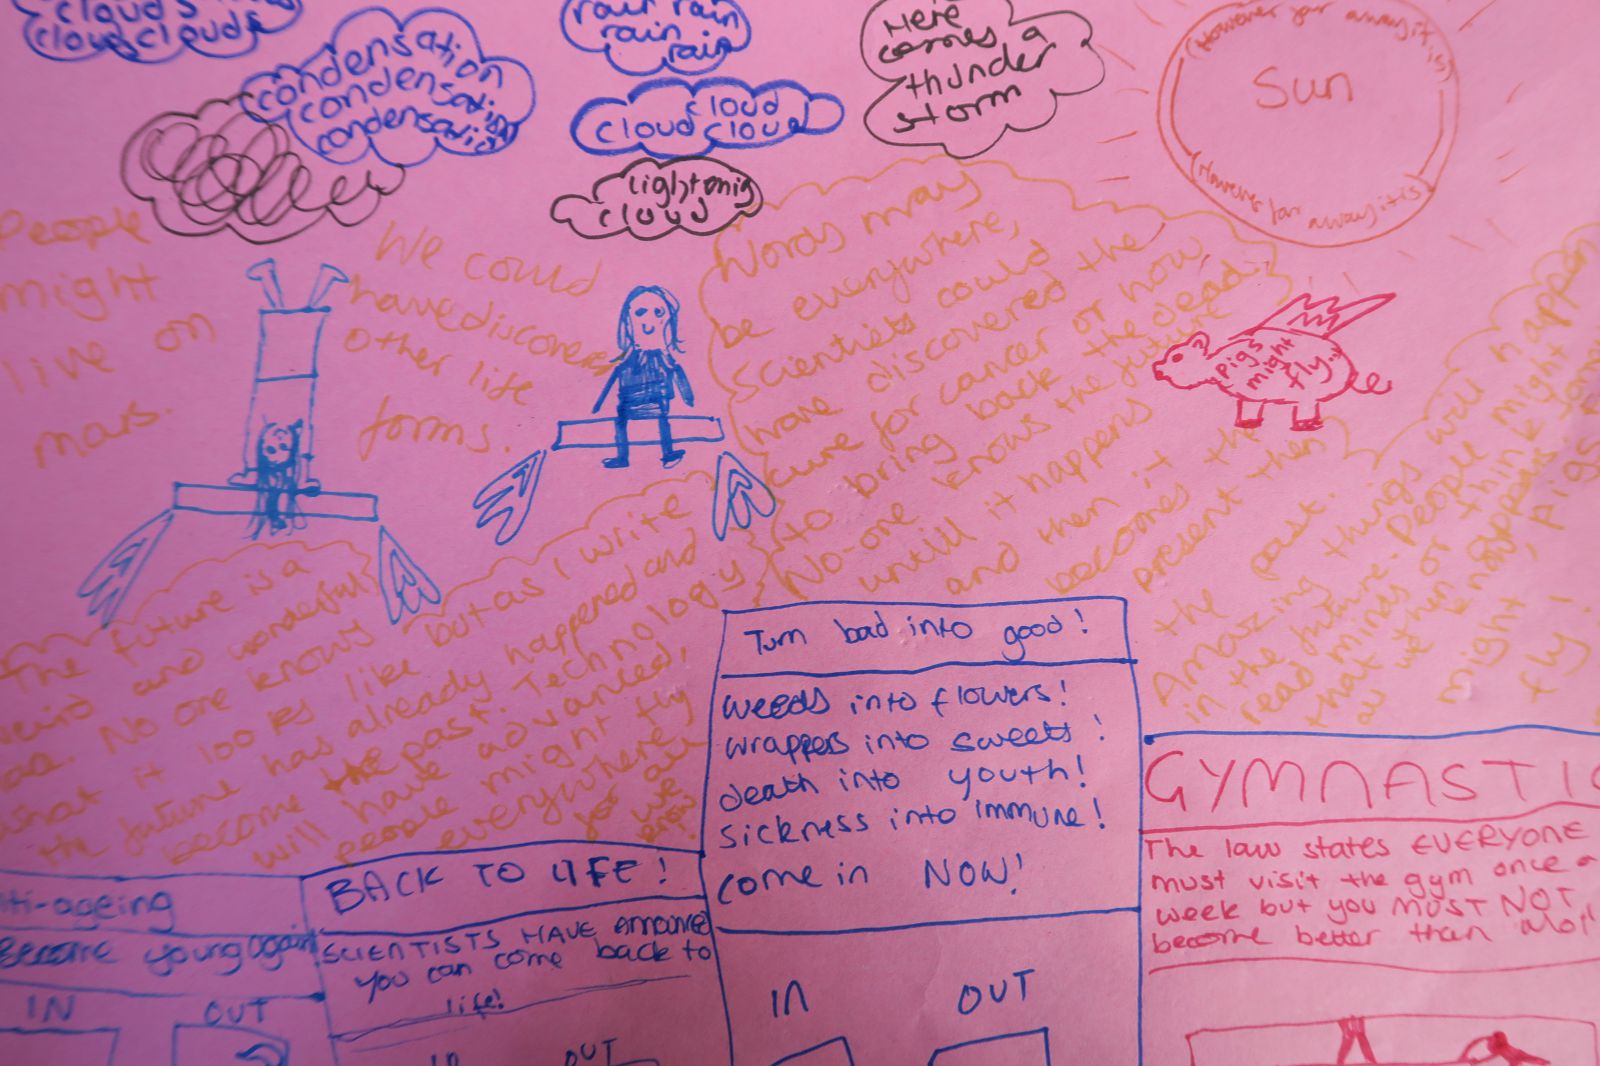 clouds
cloud clouds
condensation
condensation
condensation
rain rain
rain
rain
cloud
cloud cloud
lightning
cloud
Here
comes a
thunder
storm
(However far away it is)
Sun
(However far away it is)
People
might
live on
mars.
We could
have discovered
other life
forms.
Words may
be everywhere,
scientists could
have discovered the
cure for cancer or how
to bring back the dead.
No-one knows the future
untill it happens
and then it the
becomes
present then
the past.
pigs
might
fly..
Amazing things will happen
in the future. People might
read minds or think
that then happens.
as we know, pigs
might
fly!
The future is a
weird and wonderful
No one knows
what it looks like but as I write
the future has already happened and
become the past. Technology
will have advanced,
people might fly
everywhere
for all
we
know.
Turn bad into good!
weeds into flowers!
wrappers into sweets!
death into youth!
sickness into immune!
come in NOW!
IN OUT
GYMNASTIC
The law states EVERYONE
must visit the gym once a
week but you MUST NOT
become better than
ti-ageing
Become young again
IN OUT
BACK TO LIFE!
SCIENTISTS HAVE announced
you can come back to
life!
IN OUT